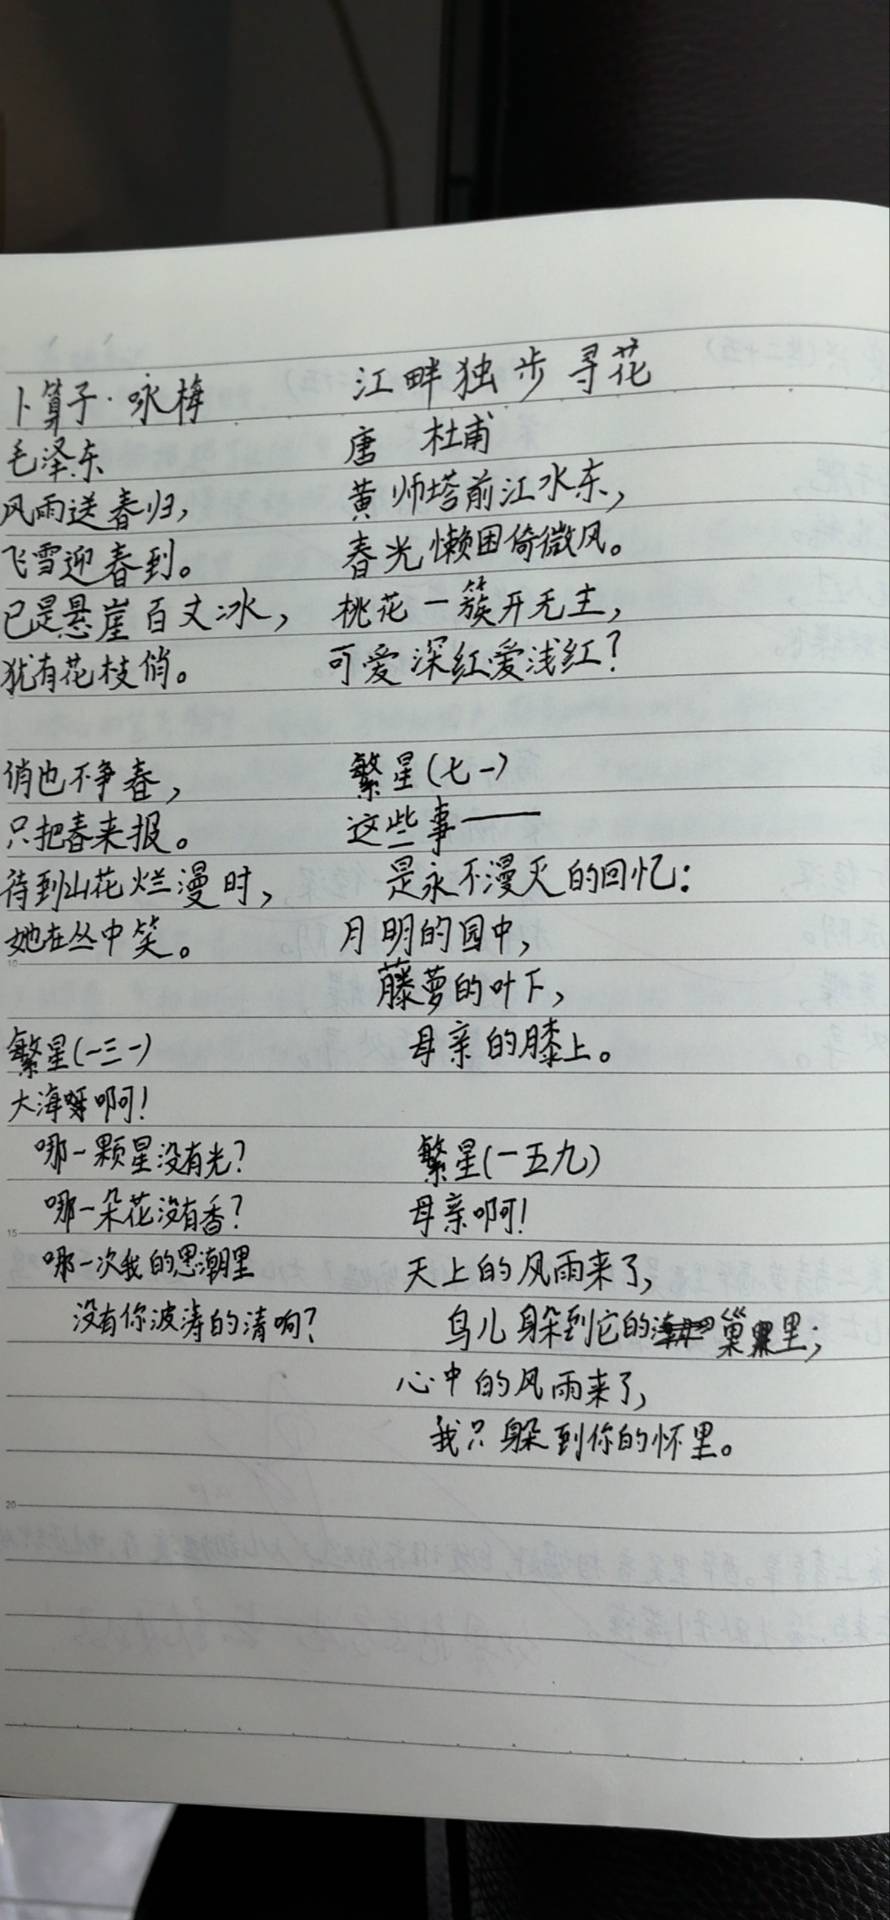 卜算子·咏梅
毛泽东
风雨送春归，
飞雪迎春到。
已是悬崖百丈冰，
犹有花枝俏。
俏也不争春，
只把春来报。
待到山花烂漫时，
她在丛中笑。
繁星(一三一)
大海呀啊！
哪一颗星没有光？
哪一朵花没有香？
哪一次我的思潮里
没有你波涛的清响？
江畔独步寻花
唐 杜甫
黄师塔前江水东，
春光懒困倚微风。
桃花一簇开无主，
可爱深红爱浅红？
繁星(七一)
这些事——
是永不漫灭的回忆：
月明的园中，
藤萝的叶下，
母亲的膝上。
繁星(一五九)
母亲啊！
天上的风雨来了，
鸟儿躲到它的巢里；
心中的风雨来了，
我只躲到你的怀里。
10
15
20